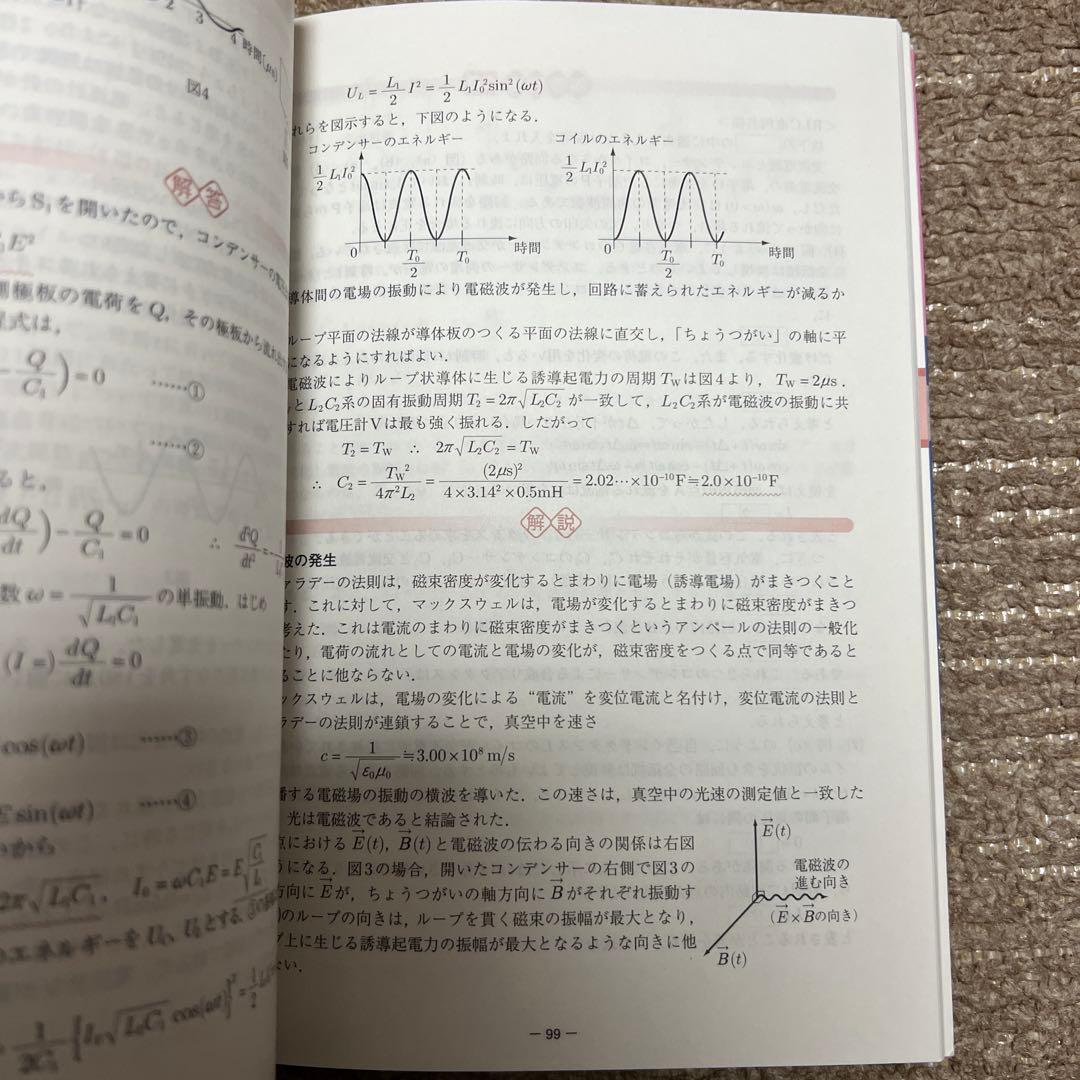 2
3
4 時間(μs)
図4
解答
からS₁を開いたので，コンデンサーの
₁E²
側極板の電荷をQ，その極板から流れ
程式は，
− Q/C₁ ) = 0 ……①
……②
ると，
dQ/dt ) − Q/C₁ = 0 ∴ d²Q/dt² = −
数 ω = 1/√L₁C₁ の単振動．はじめ
(I =) dQ/dt = 0
cos(ωt) ……③
E sin(ωt) ……④
から
2π√L₁C₁， I₀ = ωC₁E = E√
のエネルギーを
cos(ωt)
U_L = L₁/2 I² = 1/2 L₁I₀² sin²(ωt)
れらを図示すると，下図のようになる．
コンデンサーのエネルギー
1/2 L₁I₀²
0
T₀/2
T₀
時間
コイルのエネルギー
1/2 L₁I₀²
0
T₀/2
T₀
時間
導体間の電場の振動により電磁波が発生し，回路に蓄えられたエネルギーが減るか
ループ平面の法線が導体板のつくる平面の法線に直交し，「ちょうつがい」の軸に平
になるようにすればよい．
電磁波によりループ状導体に生じる誘導起電力の周期T_Wは図4より，T_W = 2μs．
とL₂C₂系の固有振動周期T₂ = 2π√L₂C₂ が一致して，L₂C₂系が電磁波の振動に共
すれば電圧計Vは最も強く振れる．したがって
T₂ = T_W ∴ 2π√L₂C₂ = T_W
∴ C₂ = T_W²/4π²L₂ = (2μs)²/4×3.14²×0.5mH = 2.02…×10⁻¹⁰F ≒ 2.0×10⁻¹⁰F
解説
波の発生
ァラデーの法則は，磁束密度が変化するとまわりに電場（誘導電場）がまきつくこと
す．これに対して，マックスウェルは，電場が変化するとまわりに磁束密度がまきつ
考えた．これは電流のまわりに磁束密度がまきつくというアンペールの法則の一般化
たり，電荷の流れとしての電流と電場の変化が，磁束密度をつくる点で同等であると
ることに他ならない．
ックスウェルは，電場の変化による“電流”を変位電流と名付け，変位電流の法則と
ラデーの法則が連鎖することで，真空中を速さ
c = 1/√ε₀μ₀ ≒ 3.00×10⁸ m/s
播する電磁場の振動の横波を導いた．この速さは，真空中の光速の測定値と一致した
，光は電磁波であると結論された．
点における E⃗(t)，B⃗(t) と電磁波の伝わる向きの関係は右図
うになる．図3の場合，開いたコンデンサーの右側で図3の
方向に E⃗ が，ちょうつがいの軸方向に B⃗ がそれぞれ振動す
)のループの向きは，ループを貫く磁束の振幅が最大となり，
プ上に生じる誘導起電力の振幅が最大となるような向きに他
ない．
E⃗(t)
電磁波の
進む向き
(E⃗×B⃗の向き)
B⃗(t)
— 99 —